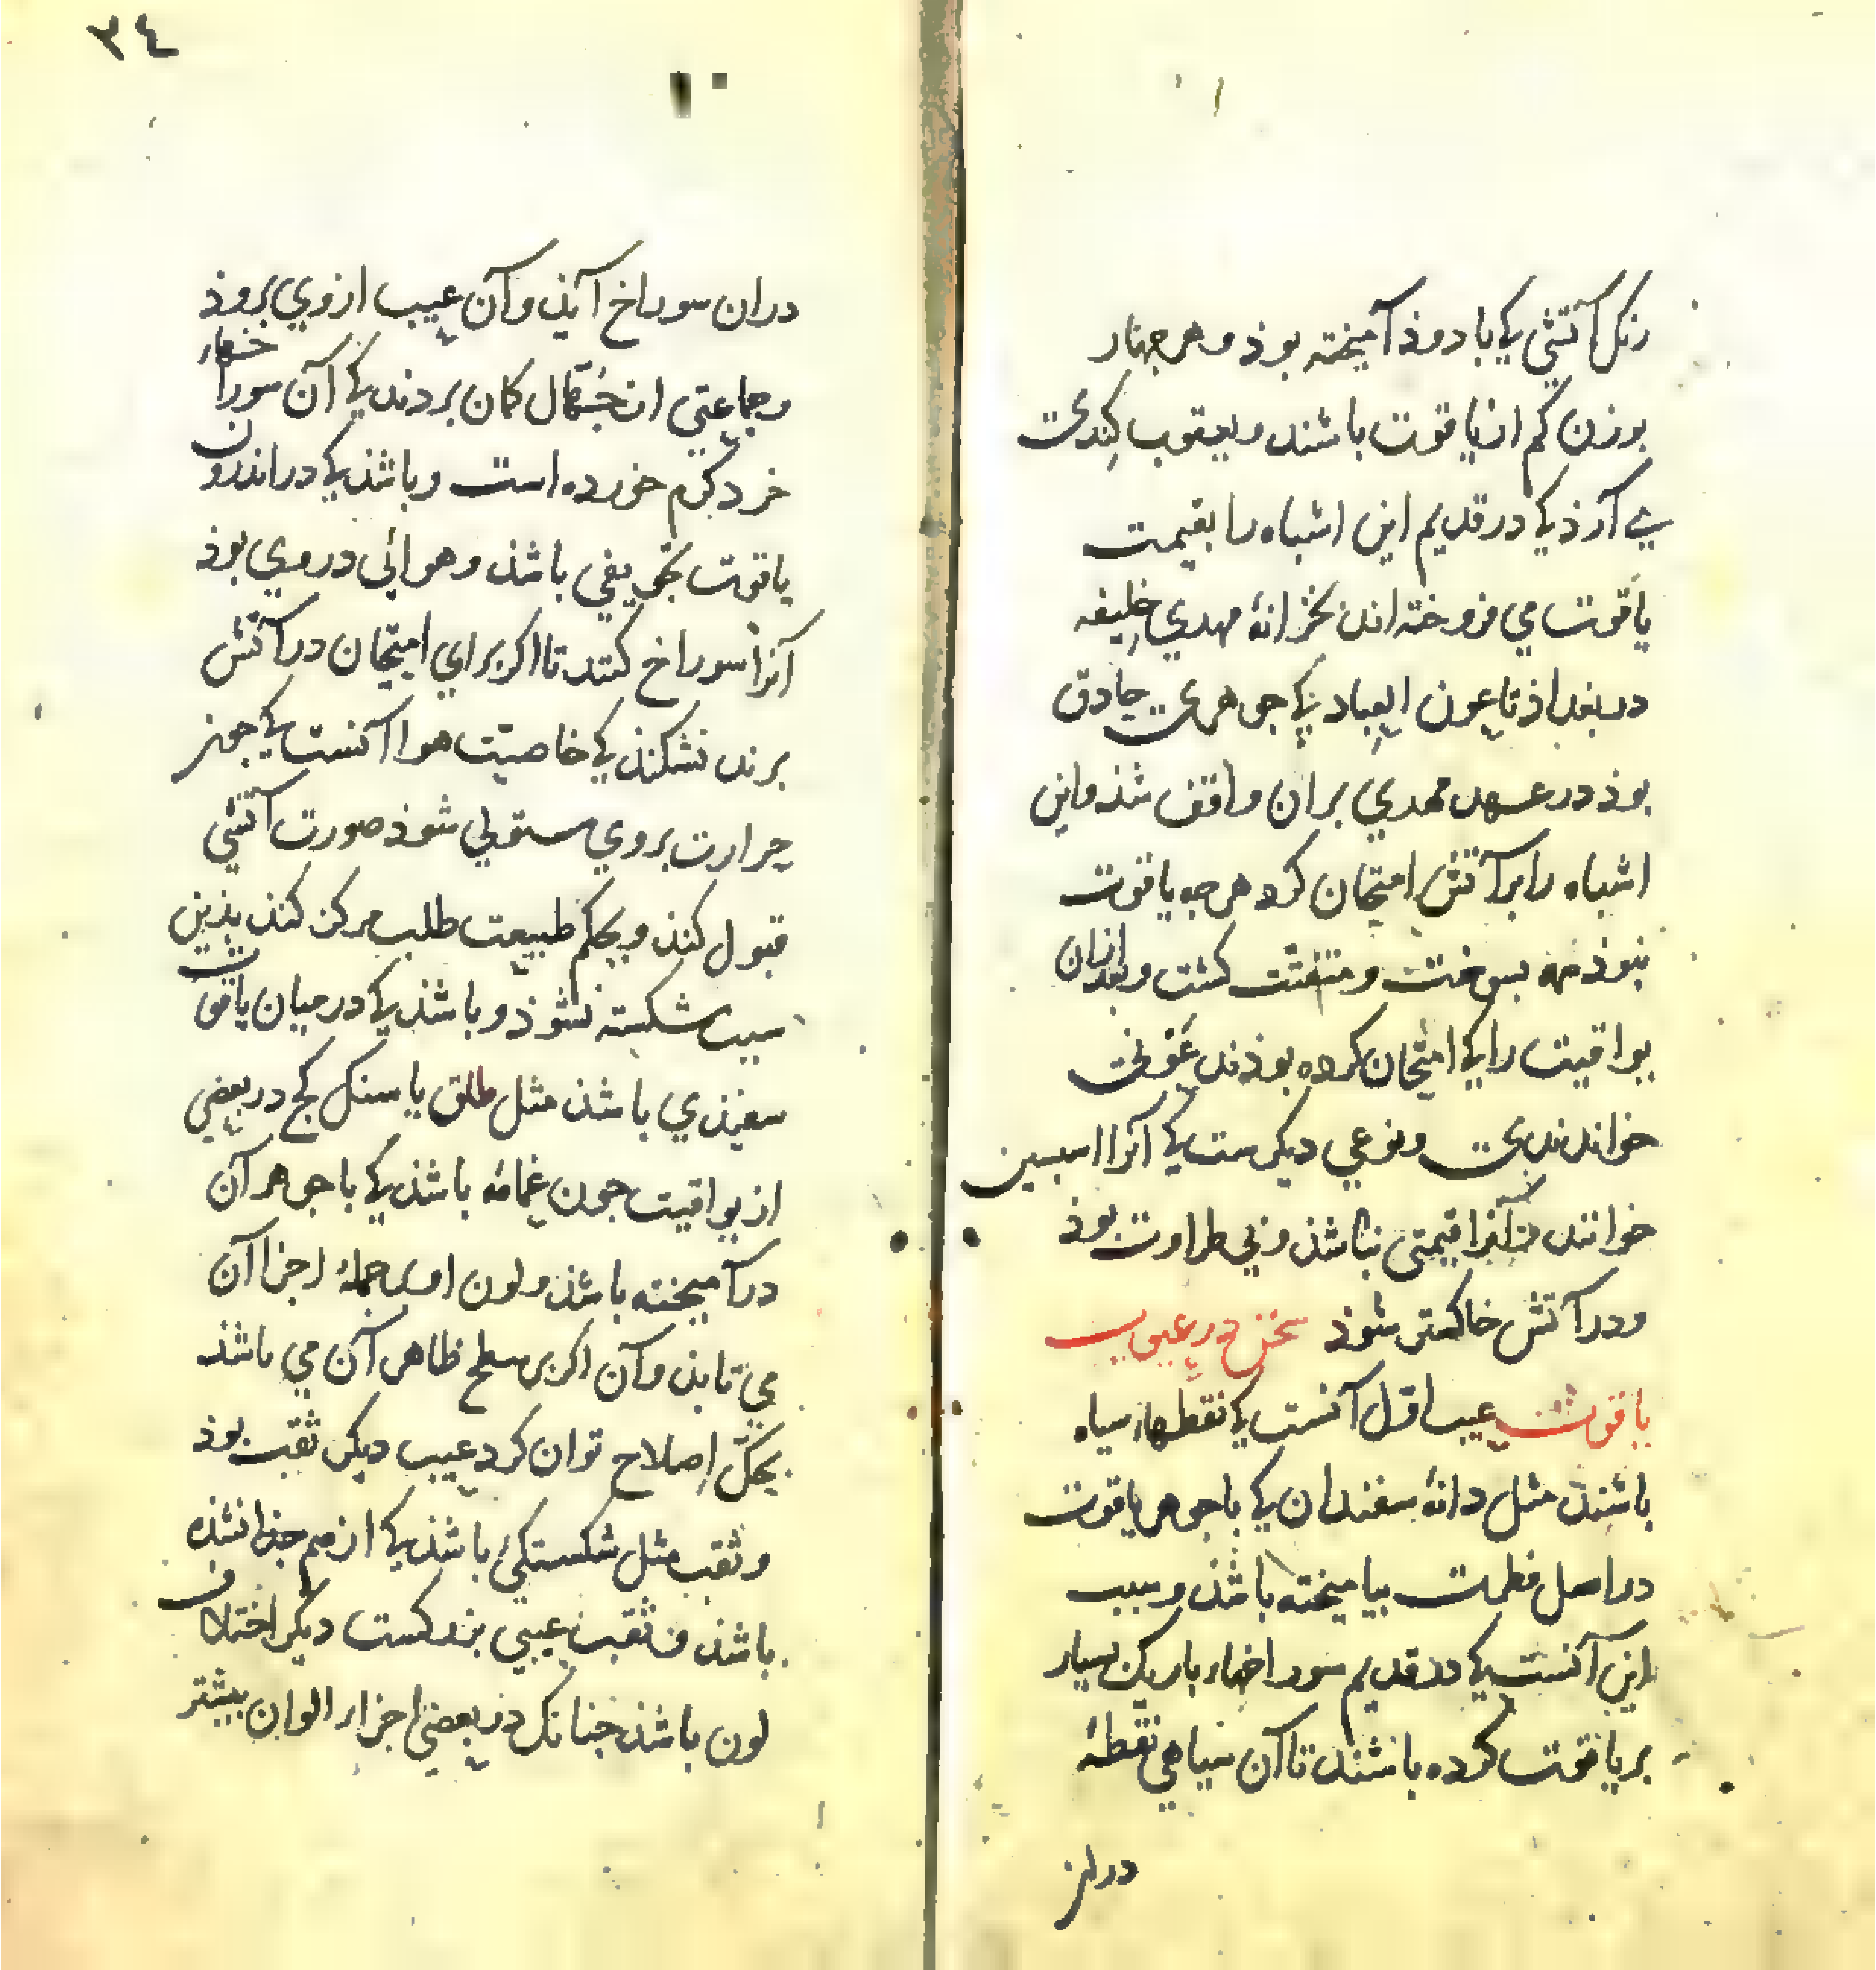 رنک آتشی کی با دوذ آمیخته بوذ و هر جهار
بوزن کم از یاقوت باشند و یعقوب کندی
می آرذ کی در قدیم این اشباه را بقیمت
یاقوت می فروخته اند بخزانهٔ مهدی خلیفه
در بغداذ تا عون العباد کی جوهری حاذق
بوذ در عهد مهدی بران واقف شذ و این
اشباه را بر آتش امتحان کرد هرجه یاقوت
نبوذ همه بسوخت و متفتت کشت و بعد ازان
یواقیت را کی امتحان کرده بوذند عونی
خواندندی و نوعی دیکرست کی آنرا اسبسین
خوانند آنرا قیمتی نباشذ و بی طراوت بوذ
و در آتش خاکستر شوذ سخن در عیوب
یاقوت عیب اوّل آنست کی نقطهاء سیاه
باشند مثل دانهٔ سفندان کی با جوهر یاقوت
در اصل فطرت بیامیخته باشذ و سبب
این آنست کی در قدیم سوراخهاء باریک بسیار
بر یاقوت کرده باشند تا آن سیاهی نقطهٔ
دران
٣٤
١٠
دران سوراخ آیذ و آن عیب ازوی بروذ
و جماعتی از جهّال کمان بردند کی آن سوراخهاء
خرد کرم خورده است و باشذ کی در اندرون
یاقوت تجویفی باشذ و هوائی در وی بوذ
آنرا سوراخ کنند تا اکر برای امتحان در آتش
برند نشکند کی خاصیّت هوا آنست کی جون
حرارت بروی مستولی شوذ صورت آتشی
قبول کند و بحکم طبیعت طلب مرکز کند بذین
سبب شکسته نشوذ و باشذ کی در میان یاقوت
سفیذی باشذ مثل طلق یا سنک کج در بعضی
از یواقیت جون غمامهٔ باشذ کی با جوهر آن
در آمیخته باشذ و لون او بر جملهٔ اجزا آن
می تابذ و آن اکر بر سطح ظاهر آن می باشذ
بحکّ اصلاح توان کرد عیب دیکر ثقب بوذ
و ثقب مثل شکستکیٔ باشذ کی از هم جذا نشذه
باشذ و ثقب عیبی بزرکست دیکر اختلاف
لون باشذ جنانک در بعضی اجزاء الوان بیشتر